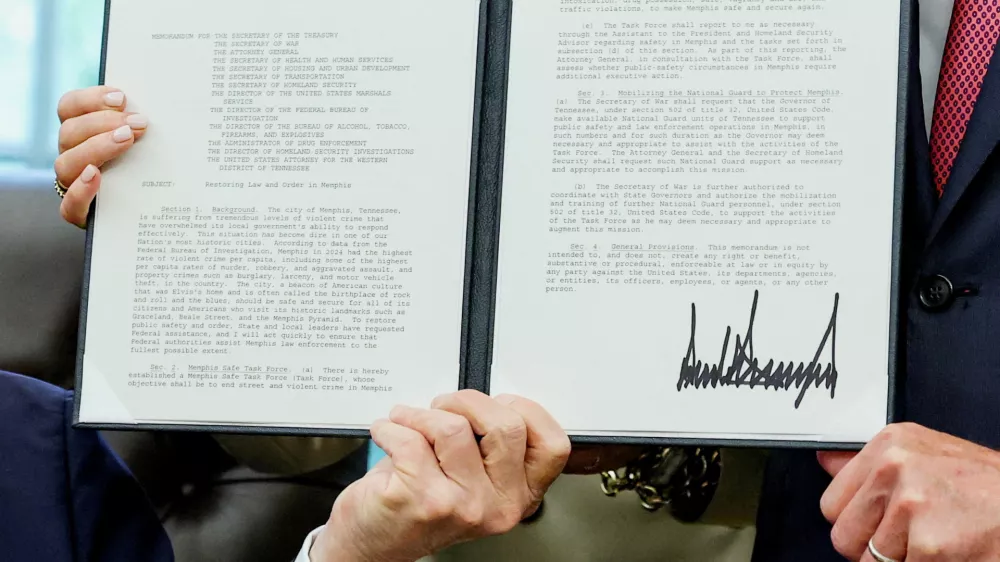 MEMORANDUM FOR THE SECRETARY OF THE TREASURY
THE SECRETARY OF WAR
THE ATTORNEY GENERAL
THE SECRETARY OF HEALTH AND HUMAN SERVICES
THE SECRETARY OF HOUSING AND URBAN DEVELOPMENT
THE SECRETARY OF TRANSPORTATION
THE SECRETARY OF HOMELAND SECURITY
THE DIRECTOR OF THE UNITED STATES MARSHALS
SERVICE
THE DIRECTOR OF THE FEDERAL BUREAU OF
INVESTIGATION
THE DIRECTOR OF THE BUREAU OF ALCOHOL, TOBACCO,
FIREARMS, AND EXPLOSIVES
THE ADMINISTRATOR OF DRUG ENFORCEMENT
THE DIRECTOR OF HOMELAND SECURITY INVESTIGATIONS
THE UNITED STATES ATTORNEY FOR THE WESTERN
DISTRICT OF TENNESSEE
SUBJECT: Restoring Law and Order in Memphis
Section 1. Background. The city of Memphis, Tennessee,
is suffering from tremendous levels of violent crime that
have overwhelmed its local government's ability to respond
effectively. This situation has become dire in one of our
Nation's most historic cities. According to data from the
Federal Bureau of Investigation, Memphis in 2024 had the highest
rate of violent crime per capita, including some of the highest
per capita rates of murder, robbery, and aggravated assault, and
property crimes such as burglary, larceny, and motor vehicle
theft, in the country. The city, a beacon of American culture
that was Elvis's home and is often called the birthplace of rock
and roll and the blues, should be safe and secure for all of its
citizens and Americans who visit its historic landmarks such as
Graceland, Beale Street, and the Memphis Pyramid. To restore
public safety and order, State and local leaders have requested
Federal assistance, and I will act quickly to ensure that
Federal authorities assist Memphis law enforcement to the
fullest possible extent.
Sec. 2. Memphis Safe Task Force. (a) There is hereby
established a Memphis Safe Task Force (Task Force), whose
objective shall be to end street and violent crime in Memphis
traffic violations, to make Memphis safe and secure again.
(e) The Task Force shall report to me as necessary
through the Assistant to the President and Homeland Security
Advisor regarding safety in Memphis and the tasks set forth in
subsection (d) of this section. As part of this reporting, the
Attorney General, in consultation with the Task Force, shall
assess whether public-safety circumstances in Memphis require
additional executive action.
Sec. 3. Mobilizing the National Guard to Protect Memphis.
(a) The Secretary of War shall request that the Governor of
Tennessee, under section 502 of title 32, United States Code,
make available National Guard units of Tennessee to support
public safety and law enforcement operations in Memphis, in
such numbers and for such duration as the Governor may deem
necessary and appropriate to assist with the activities of the
Task Force. The Attorney General and the Secretary of Homeland
Security shall request such National Guard support as necessary
and appropriate to accomplish this mission.
(b) The Secretary of War is further authorized to
coordinate with State Governors and authorize the mobilization
and training of further National Guard personnel, under section
502 of title 32, United States Code, to support the activities
of the Task Force as he may deem necessary and appropriate to
augment this mission.
Sec. 4. General Provisions. This memorandum is not
intended to, and does not, create any right or benefit,
substantive or procedural, enforceable at law or in equity by
any party against the United States, its departments, agencies,
or entities, its officers, employees, or agents, or any other
person.